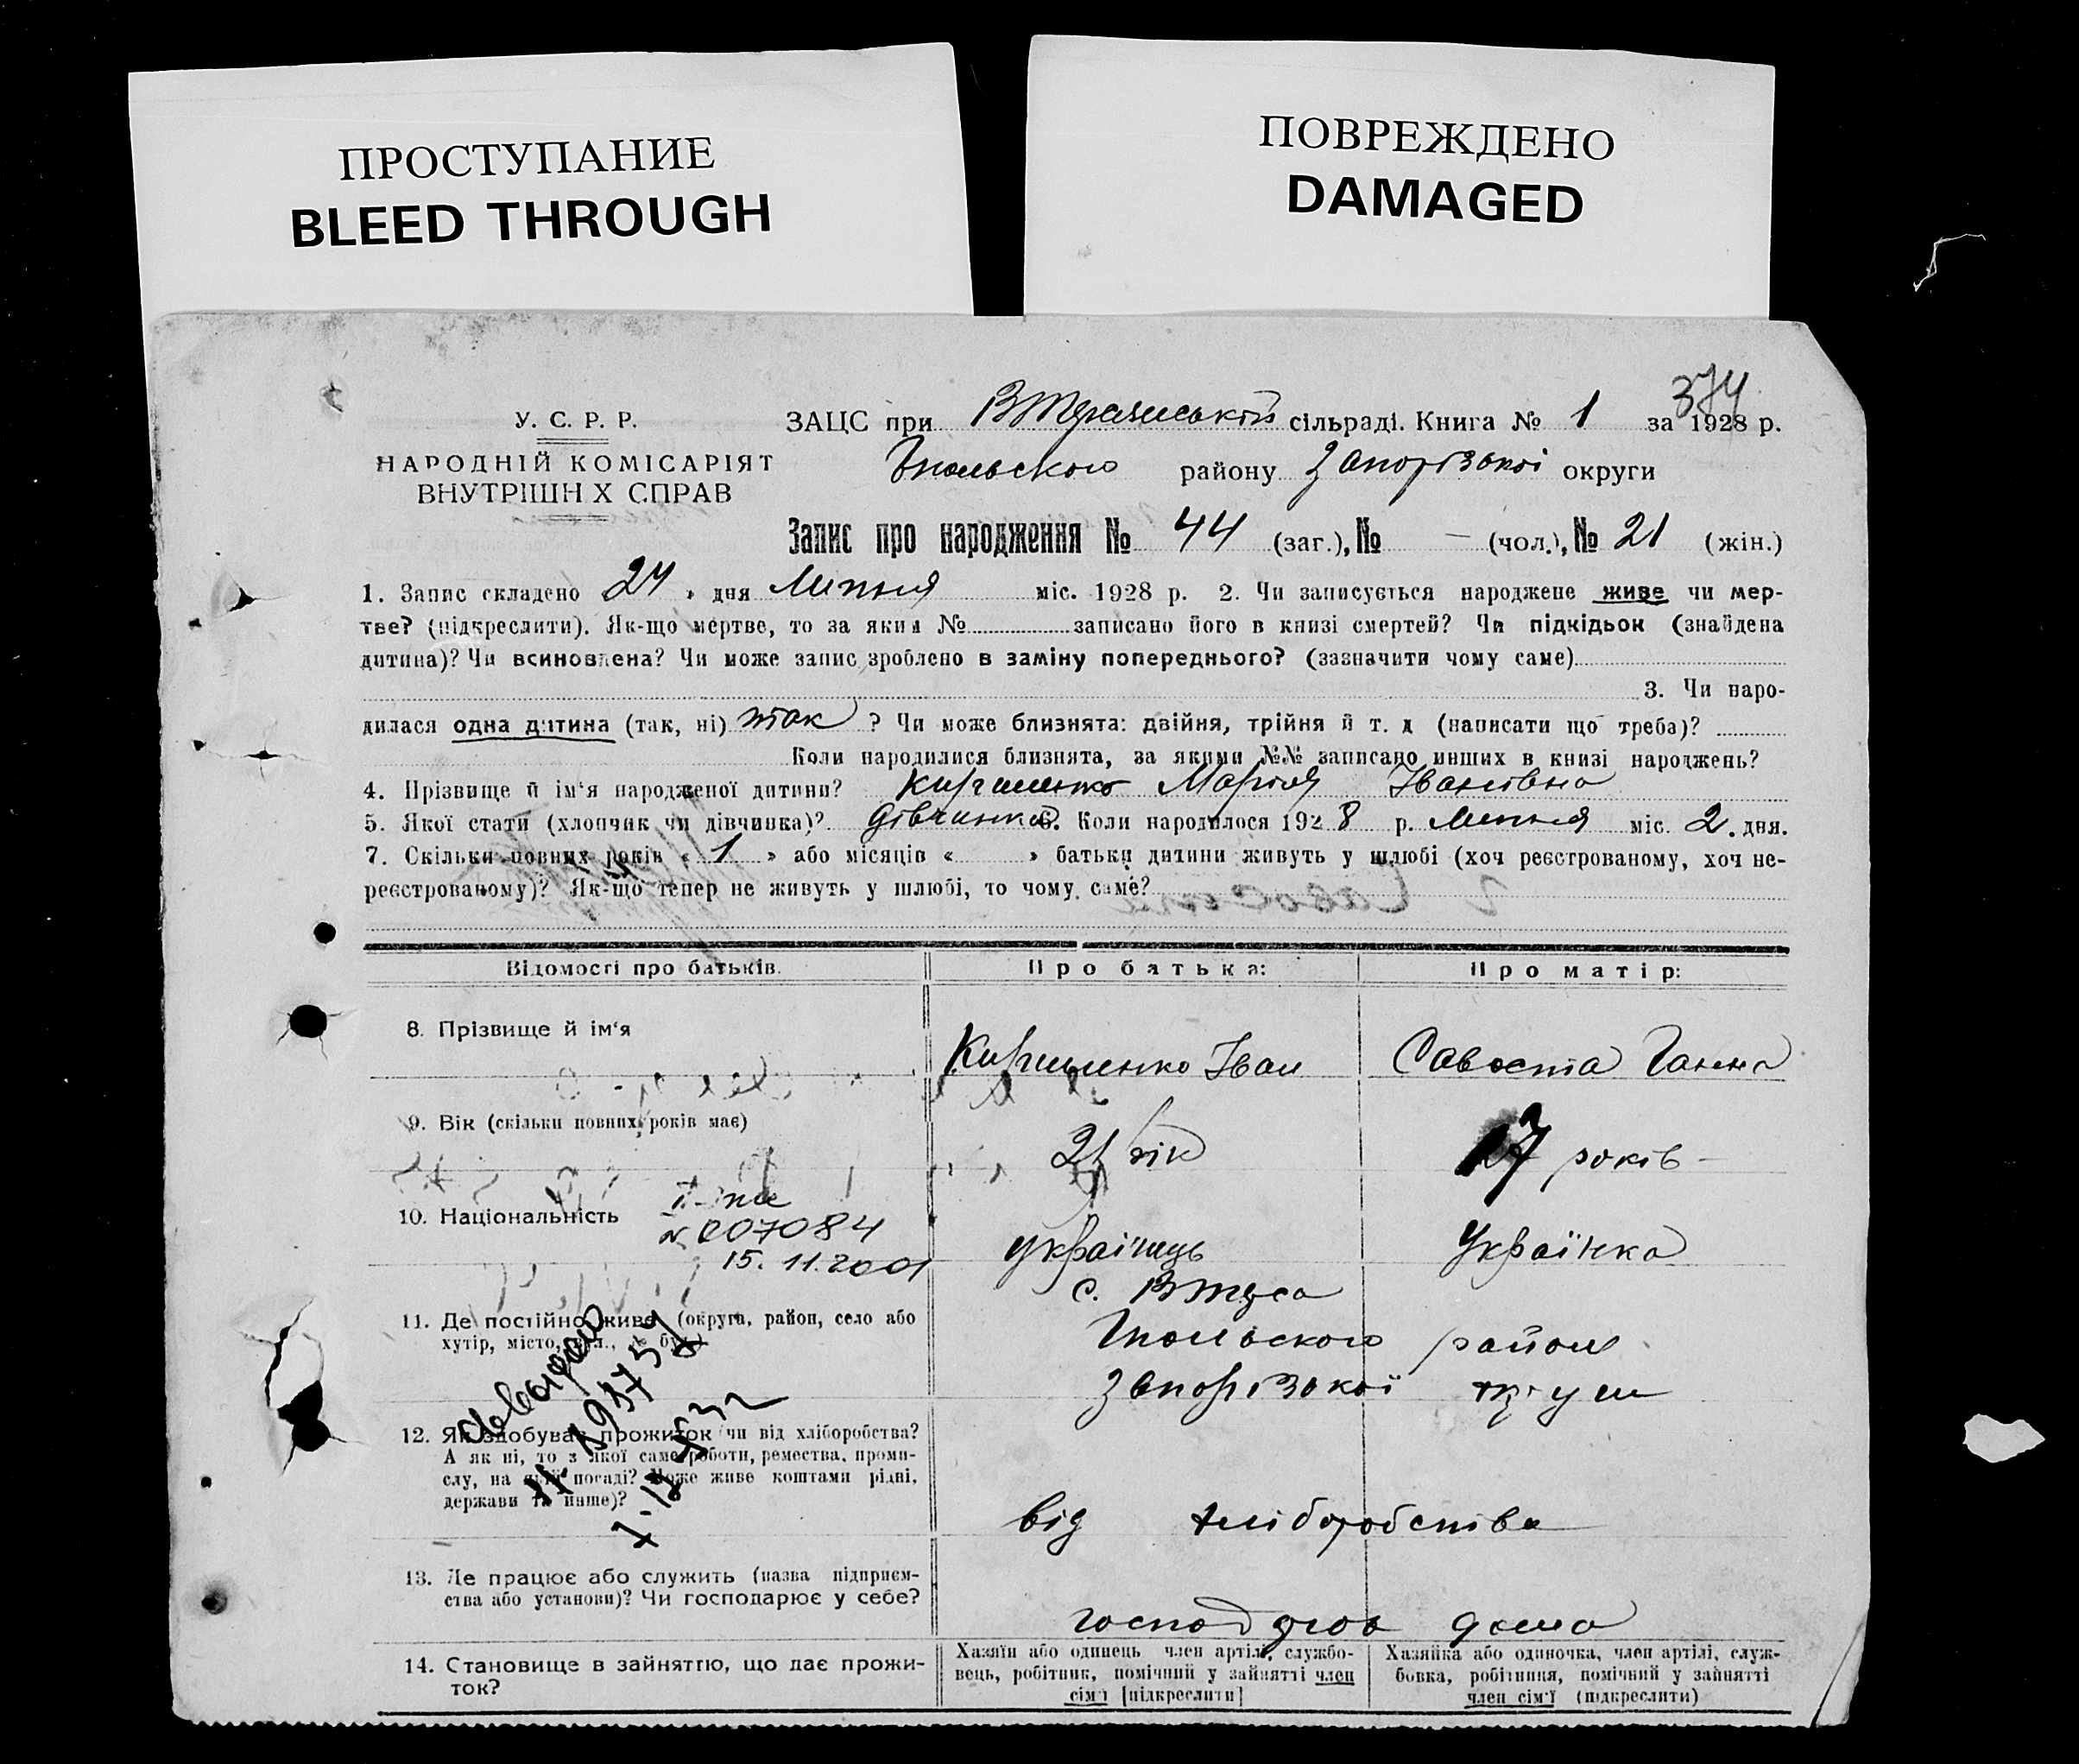 ПРОСТУПАНИЕ
BLEED THROUGH
ПОВРЕЖДЕНО
DAMAGED
374
У. С. Р. Р.
НАРОДНІЙ КОМІСАРІЯТ
ВНУТРІШН Х СПРАВ
ЗАЦС при сільраді. Книга № 1 за 1928 р.
району Запорізької округи
Запис про народження № 44 (заг.), № — (чол.), № 21 (жін.)
1. Запис складено 24 дня Липня міс. 1928 р. 2. Чи записується народжене живе чи мер-
тве? (підкреслити). Як-що мертве, то за яким № записано його в книзі смертей? Чи підкідьок (знайдена
дитина)? Чи всиновлена? Чи може запис зроблено в заміну попереднього? (зазначити чому саме)
3. Чи наро-
дилася одна дитина (так, ні) так ? Чи може близнята: двійня, трійня й т. д (написати що треба)?
Коли народилися близнята, за якими №№ записано инших в книзі народжень?
4. Прізвище й ім'я народженої дитини? Киріченко Марія Іванівна
5. Якої стати (хлопчик чи дівчинка)? дівчинка 6. Коли народилося 1928 р. Липня міс. 2. дня.
7. Скільки повних років « 1 » або місяців « » батьки дитини живуть у шлюбі (хоч реєстрованому, хоч не-
реєстрованому)? Як-що тепер не живуть у шлюбі, то чому саме?
Відомості про батьків.
Про батька:
Про матір:
8. Прізвище й ім'я
Іван
Савоста Ганна
9. Вік (скільки повних років має)
21 рік
17 років
10. Національність
007084
15.11.2001
українець
Українка
11. Де постійно живе (округа, район, село або
хутір, місто, вул., № буд.)
с.
району
Запорізької округи
12. Як здобуває прожиток чи від хліборобства?
А як ні, то з якої саме роботи, ремества, проми-
слу, на якій посаді? Може живе коштами рідні,
держави та инше)?
від хліборобства
13. Де працює або служить (назва підприєм-
ства або установи)? Чи господарює у себе?
дома
14. Становище в зайняттю, що дає прожи-
ток?
Хазяїн або одинець член артілі, службо-
вець, робітник, помічний у зайнятті член
сім'ї [підкреслити]
Хазяйка або одиночка, член артілі, служ-
бовка, робітниця, помічний у зайнятті
член сім'ї (підкреслити)